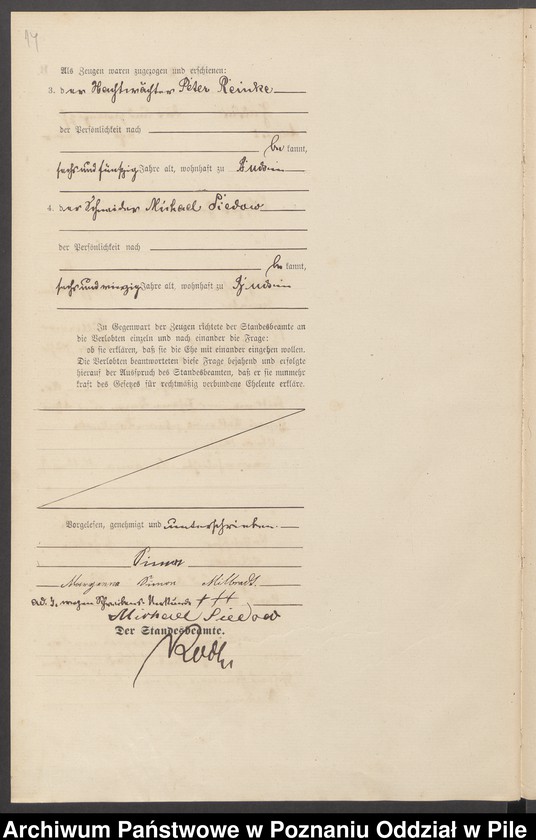 Als Zeugen waren zugezogen und erschienen:
3. der Nachtwächter Peter Reinke
der Persönlichkeit nach
bekannt,
sechs und fünfzig Jahre alt, wohnhaft zu Budsin
4. der Schneider Michael Siedow
der Persönlichkeit nach
bekannt,
sechs und vierzig Jahre alt, wohnhaft zu Budsin
In Gegenwart der Zeugen richtete der Standesbeamte an
die Verlobten einzeln und nach einander die Frage:
ob sie erklären, daß sie die Ehe mit einander eingehen wollen.
Die Verlobten beantworteten diese Frage bejahend und erfolgte
hierauf der Ausspruch des Standesbeamten, daß er sie nunmehr
kraft des Gesetzes für rechtmäßig verbundene Eheleute erkläre.
Vorgelesen, genehmigt und unterschrieben
Simon
Maryanna Simon
ad. 3. wegen Schreibens Unkunde +++
Michael Siedow
Der Standesbeamte.
Archiwum Państwowe w Poznaniu Oddział w Pile